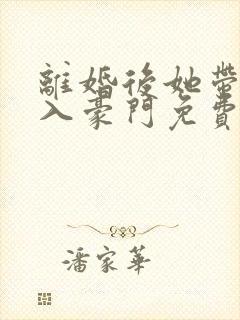 離婚後她帶
入豪門免費
潘家華